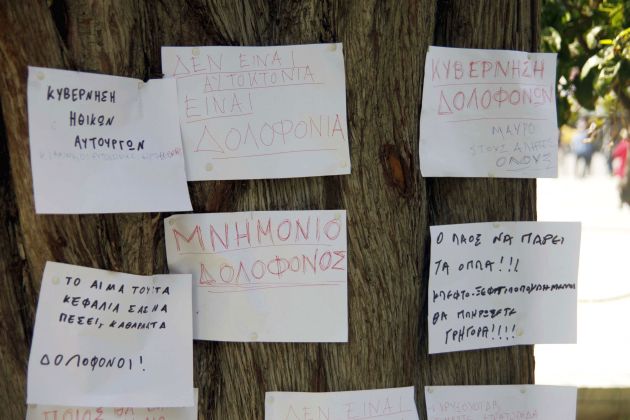 ΚΥΒΕΡΝΗΣΗ
ΗΘΙΚΩΝ
ΑΥΤΟΥΡΓΩΝ
ΔΕΝ ΕΙΝΑΙ
ΑΥΤΟΚΤΟΝΙΑ
ΕΙΝΑΙ
ΔΟΛΟΦΟΝΙΑ
ΚΥΒΕΡΝΗΣΗ
ΔΟΛΟΦΟΝΩΝ
ΜΑΥΡΟ
ΣΤΟΥΣ ΑΛΗΤΕΣ
ΟΛΟΥΣ
ΜΝΗΜΟΝΙΟ
ΔΟΛΟΦΟΝΟΣ
ΤΟ ΑΙΜΑ ΤΟΥ ΣΤΑ
ΚΕΦΑΛΙΑ ΣΑΣ ΝΑ
ΠΕΣΕΙ, ΚΑΘΑΡΜΑΤΑ
ΔΟΛΟΦΟΝΟΙ!
Ο ΛΑΟΣ ΝΑ ΠΑΡΕΙ
ΤΑ ΟΠΛΑ!!!
ΘΑ ΠΛΗΡΩΣΕΤΕ
ΓΡΗΓΟΡΑ!!!!
ΠΟΙΟΣ
ΔΕΝ ΕΙΝΑΙ